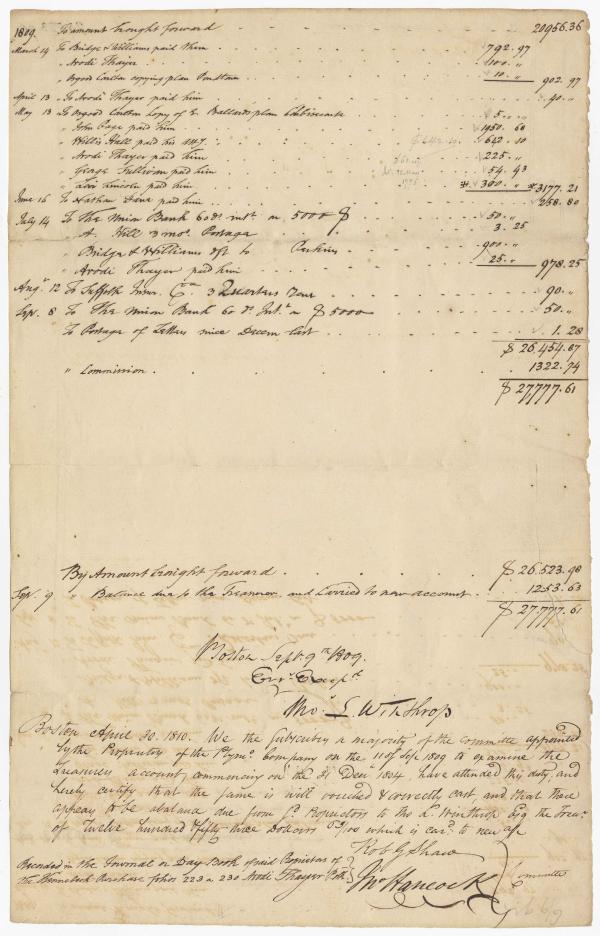 1809. To amount brought forward 20956.36
March 14 To Bridge & Williams paid them 792.97
" Arodi Thayer 100. "
" Osgood Carlton copying plan 10. " 902.97
April 13 " To Arodi Thayer paid him 40. "
May 13 To Osgood Carlton Copy of E. Ballards plan 5. "
" John Gage paid him 1950.60
" Willis Hall paid his 642.10
" Arodi Thayer paid him 225. "
" George Sullivan paid him 54.93
" Levi Lincoln paid him 300. " 3177.21
June 16 To Nathan Dane paid him 258.80
July 14 To The Union Bank 60 ds. int. on 5000 $ 50. "
" A. Hill 3 mos. Postage 3.25
" Bridge & Williams dft to Perkins 900. "
" Arodi Thayer paid him 25. " 978.25
Augt. 12 To Suffolk Insur. Co. 3 Quarters Rent 90. "
Sept. 8 To The Union Bank 60 ds. Int. on $ 5000 50. "
To Postage of Letters since Decem last 1.28
$ 26,454.87
" Commission 1322.74
$ 27,777.61
By Amount brought forward $ 26,523.98
Sep. 9 " Balance due to the Treasurer, and carried to new account 1253.63
$ 27,777.61
Boston Sept. 9th 1809.
Errs. Excepd.
Tho. L. Winthrop
Boston April 30. 1810. We the subscribers a majority of the committee appointed
by the Proprietors of the Plymo. Company on the 11 of Sep 1809 to examine the
Treasurers account, commencing on the 31 Decr. 1804, have attended this duty, and
hereby certify that the same is well vouched & correctly cast, and that there
appears to be a balance due from sd. Proprietors to Tho L. Winthrop Esq the Treasr.
of Twelve hundred & fifty three Dollars 63/100 which is card. to new a/c
Rob G Shaw
Jno Hancock
Committee
Recorded in the Journal or Day Book of said Proprietors of
the Kennebeck Purchase folios 223 a 230 Arodi Thayer